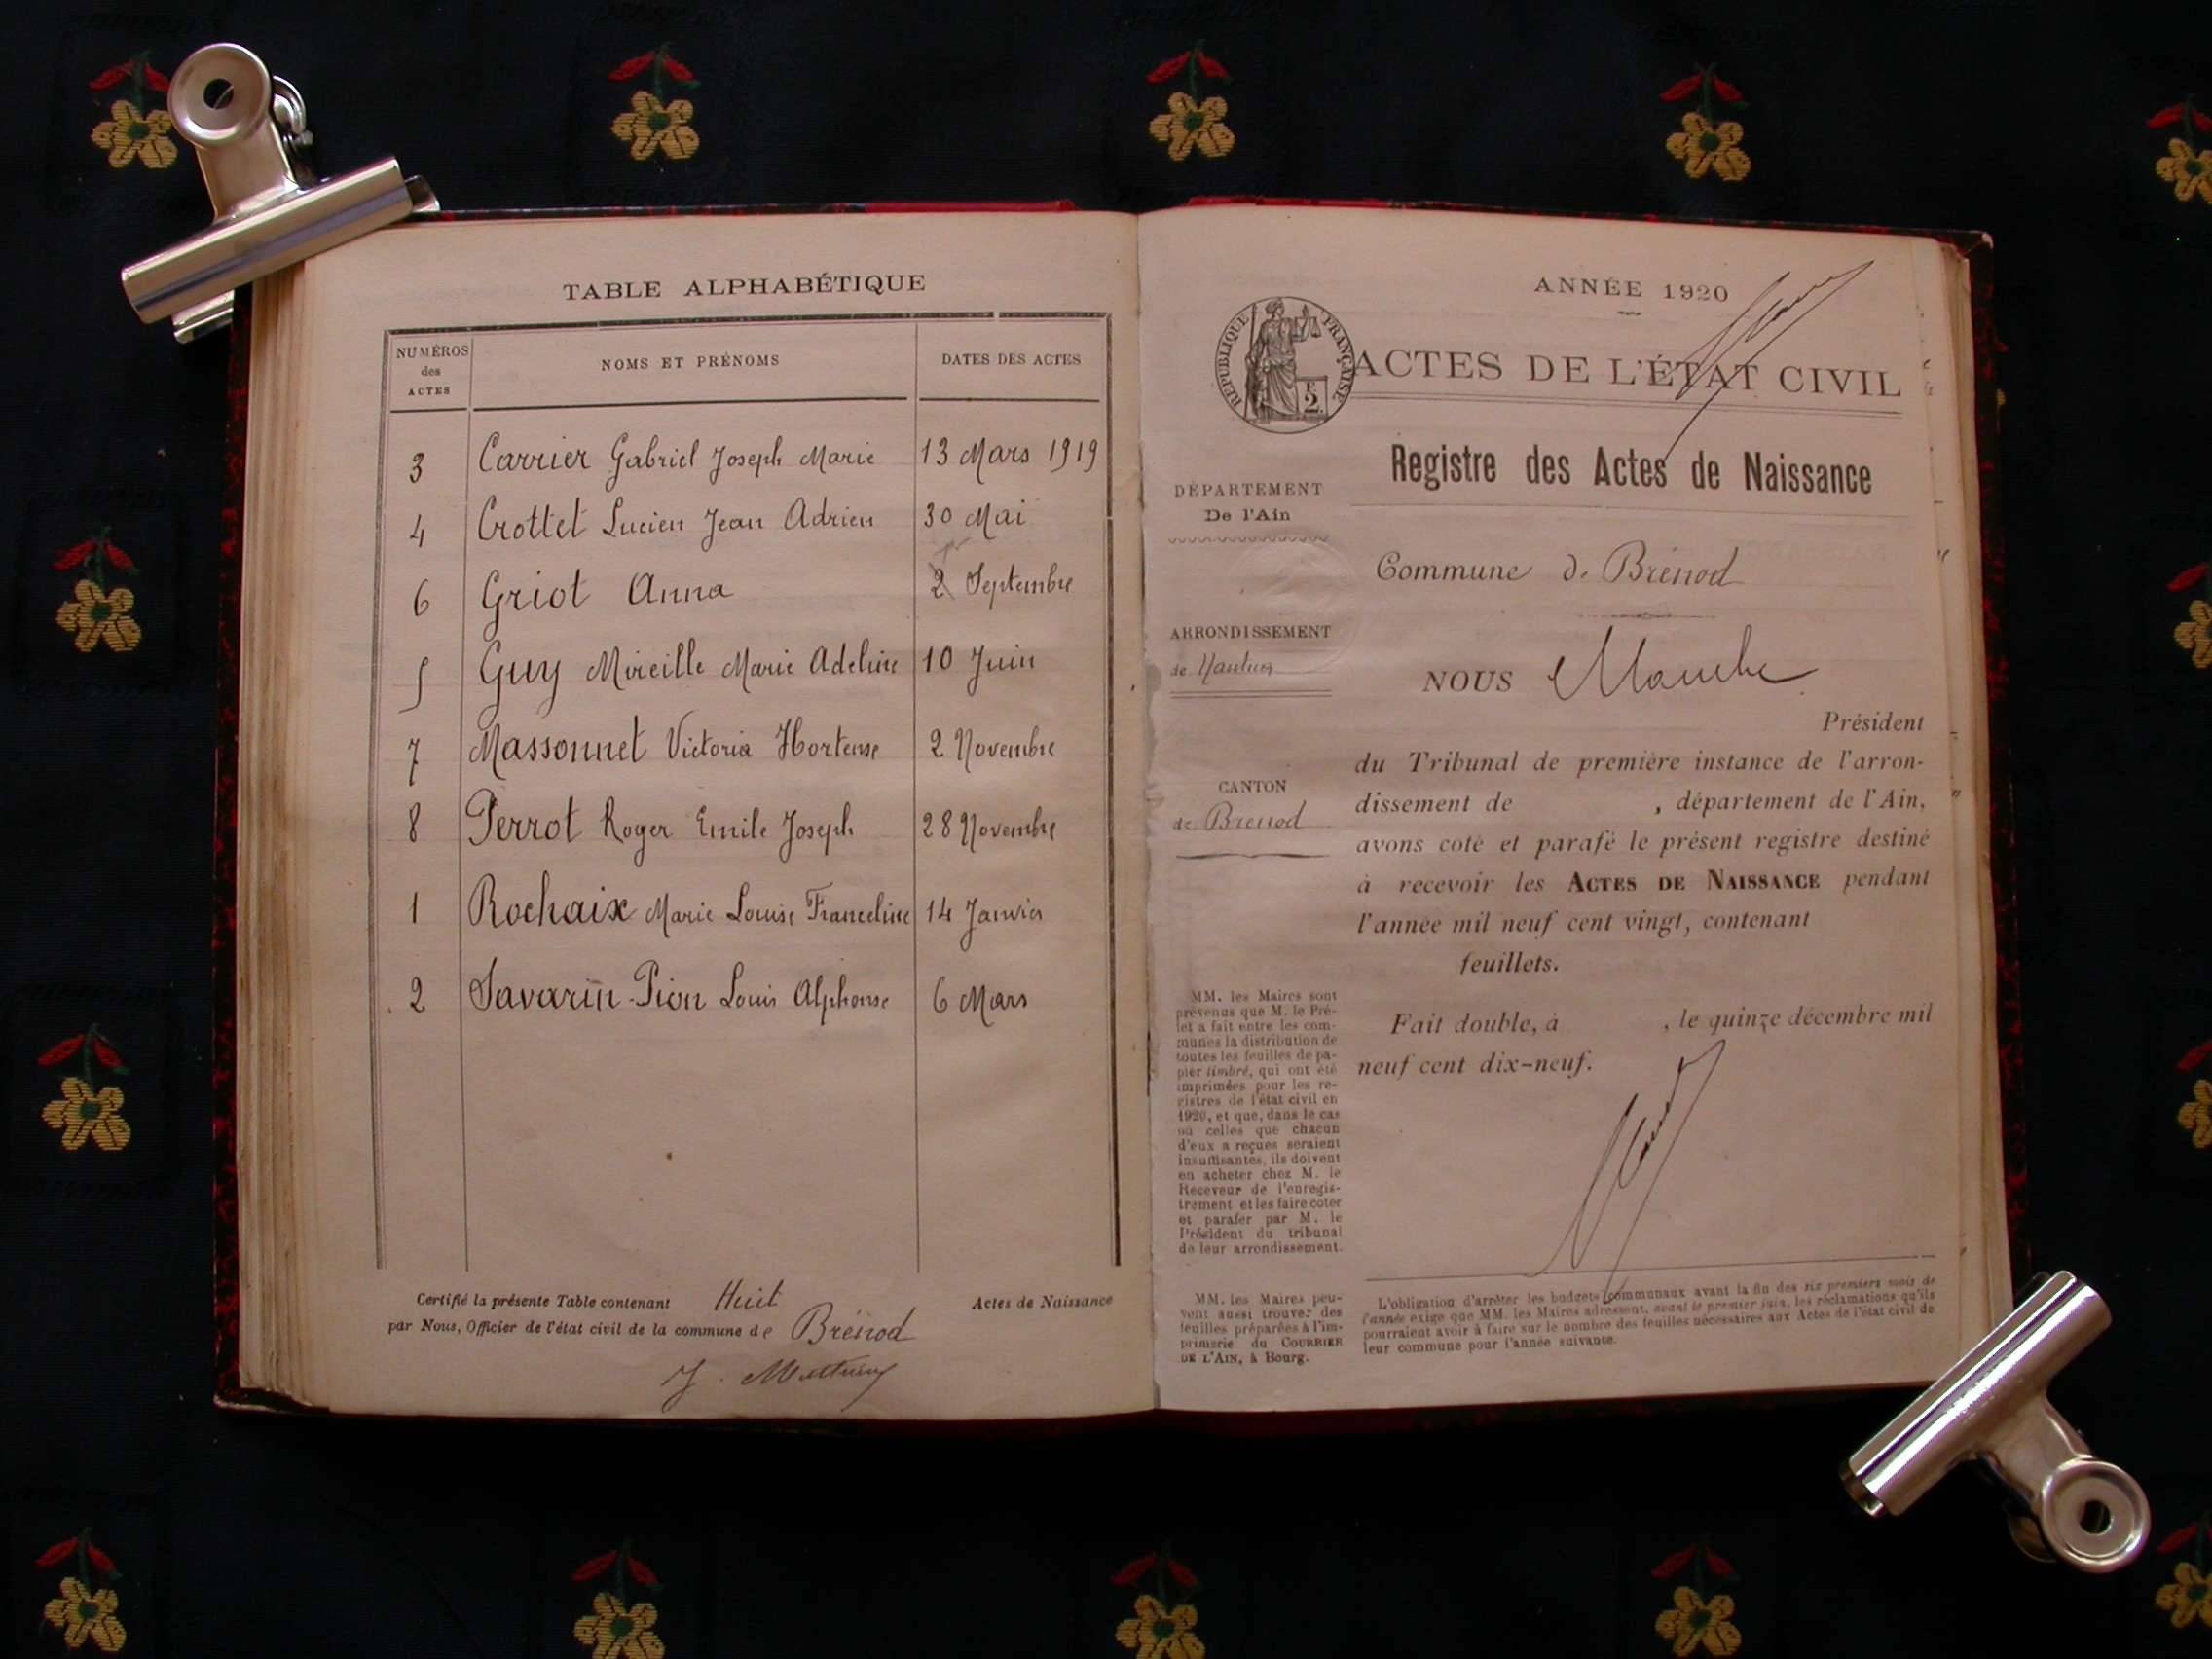 TABLE ALPHABÉTIQUE
NUMÉROS des ACTES NOMS ET PRÉNOMS DATES DES ACTES
3 Carrier Gabriel Joseph Marie 13 Mars 1919
4 Crottet Lucien Jean Adrien 30 Mai
6 Griot Anna 2 Septembre
5 Guy Mireille Marie Adeline 10 Juin
7 Massonnet Victoria Hortense 2 Novembre
8 Perrot Roger Emile Joseph 28 Novembre
1 Rochaix Marie Louise Franceline 14 Janvier
2 Savarin-Pion Louis Alphonse 6 Mars
Certifié la présente Table contenant Huit Actes de Naissance
par Nous, Officier de l'état civil de la commune de Brénod
J.
ANNÉE 1920
RÉPUBLIQUE FRANÇAISE
2
ACTES DE L'ÉTAT CIVIL
Registre des Actes de Naissance
DÉPARTEMENT
De l'Ain
Commune de Brénod
ARRONDISSEMENT
de Nantua
CANTON
de Brénod
NOUS
Président
du Tribunal de première instance de l'arron-
dissement de , département de l'Ain,
avons coté et parafé le présent registre destiné
à recevoir les ACTES DE NAISSANCE pendant
l'année mil neuf cent vingt, contenant
feuillets.
Fait double, à , le quinze décembre mil
neuf cent dix-neuf.
MM. les Maires sont
prévenus que M. le Pré-
fet a fait entre les com-
munes la distribution de
toutes les feuilles de pa-
pier timbré, qui ont été
imprimées pour les re-
gistres de l'état civil en
1920, et que, dans le cas
où celles que chacun
d'eux a reçues seraient
insuffisantes, ils doivent
en acheter chez M. le
Receveur de l'enregis-
trement et les faire coter
et parafer par M. le
Président du tribunal
de leur arrondissement.
MM. les Maires peu-
vent aussi trouver des
feuilles préparées à l'im-
primerie du COURRIER
DE L'AIN, à Bourg.
L'obligation d'arrêter les budgets communaux avant la fin des six premiers mois de
l'année exige que MM. les Maires adressent, avant le premier juin, les réclamations qu'ils
pourraient avoir à faire sur le nombre des feuilles nécessaires aux Actes de l'état civil de
leur commune pour l'année suivante.